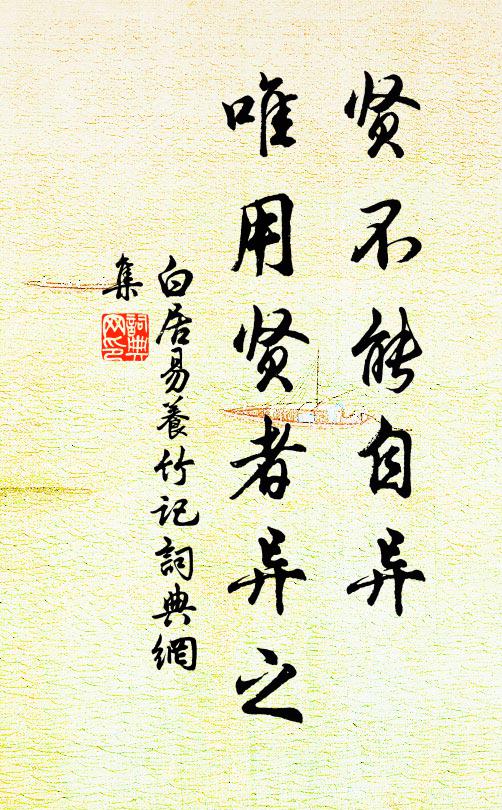 贤不能自异
唯用贤者异之
白居易養竹记詞典網
集
詞典
网印